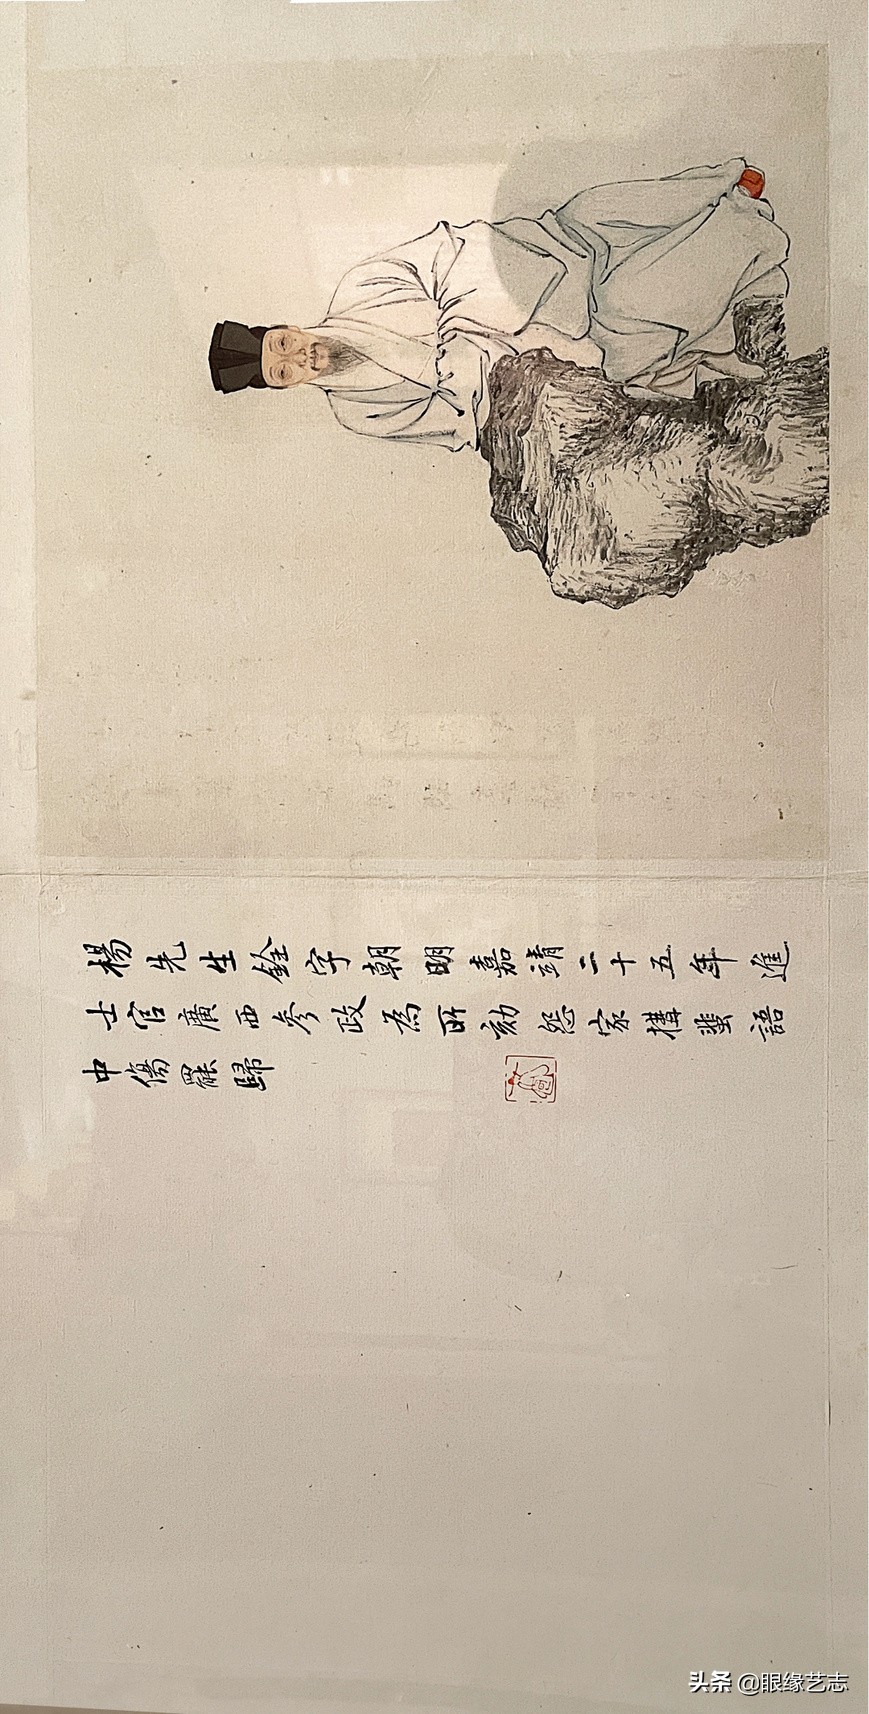 楊先生銓字朝明嘉靖二十五年進
士官廣西參政為所劾怨家搆蜚語
中傷罷歸
头条 @眼缘艺志